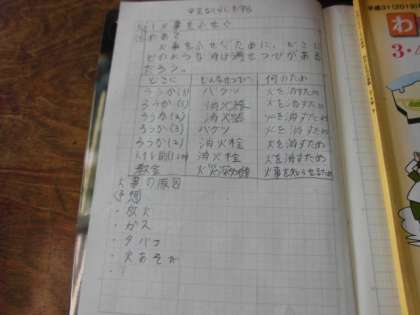 火事をふせぐ
めあて
火事をふせぐために、どこに
どのような消せつびがある
だろう。
どこに どんなせつび 何のため
ろうか(1) バケツ 火を消すため
ろうか(1) 消火器 火を消すため
ろうか(2) 消火器 火を消すため
ろうか(3) バケツ 火を消すため
ろうか(2) 消火栓 火を消すため
消火栓 火を消すため
教室 火事を知らせるため
火事の原因
予想
・放火
・ガス
・タバコ
・火あそび
平成31(2019)
わ
3・4